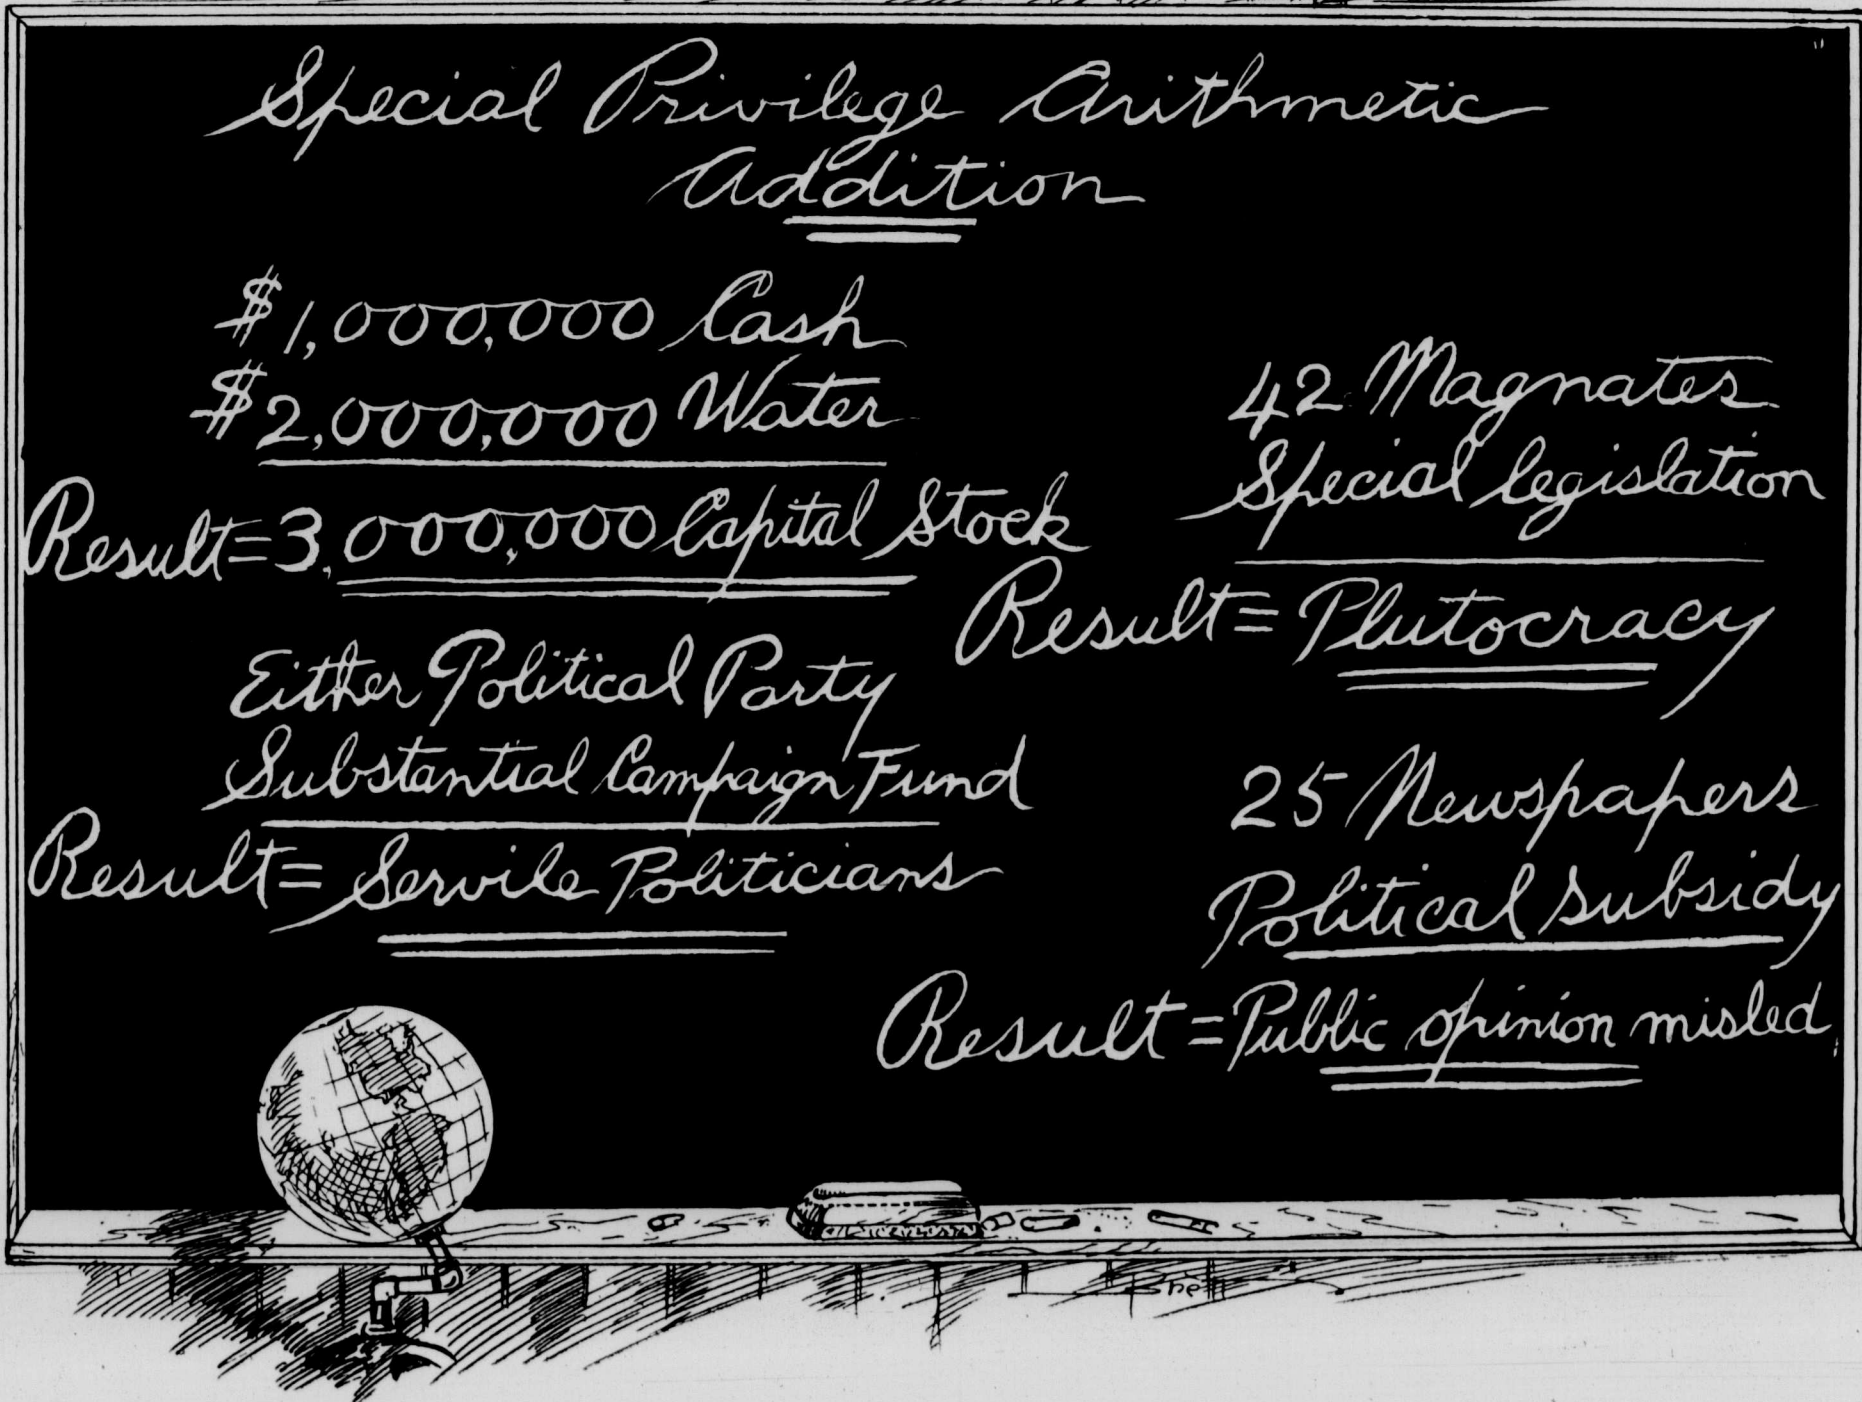 Special Privilege Arithmetic
Addition
$1,000,000 Cash
$2,000,000 Water
Result=3,000,000 Capital Stock
Either Political Party
Substantial Campaign Fund
Result= Servile Politicians
42 Magnates
Special legislation
Result= Plutocracy
25 Newspapers
Political subsidy
Result=Public opinion misled